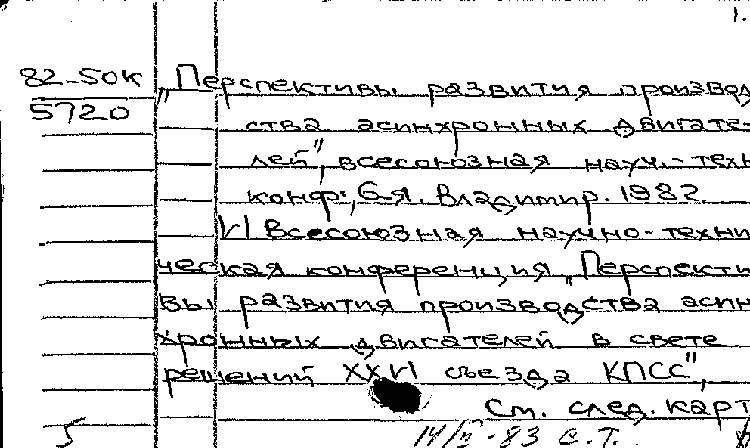 1.
82-50к „Перспективы развития производ
5720
ства асинхронных двигате-
лей", всесоюзная науч.-техн
конф., 6-я. Владимир. 1982.
VI Всесоюзная научно-техни
ческая конференция „Перспекти
вы развития производства асин
хронных двигателей в свете
решений XXVI съезда КПСС",
См. след. карт
5 14/II-83 С.Т.